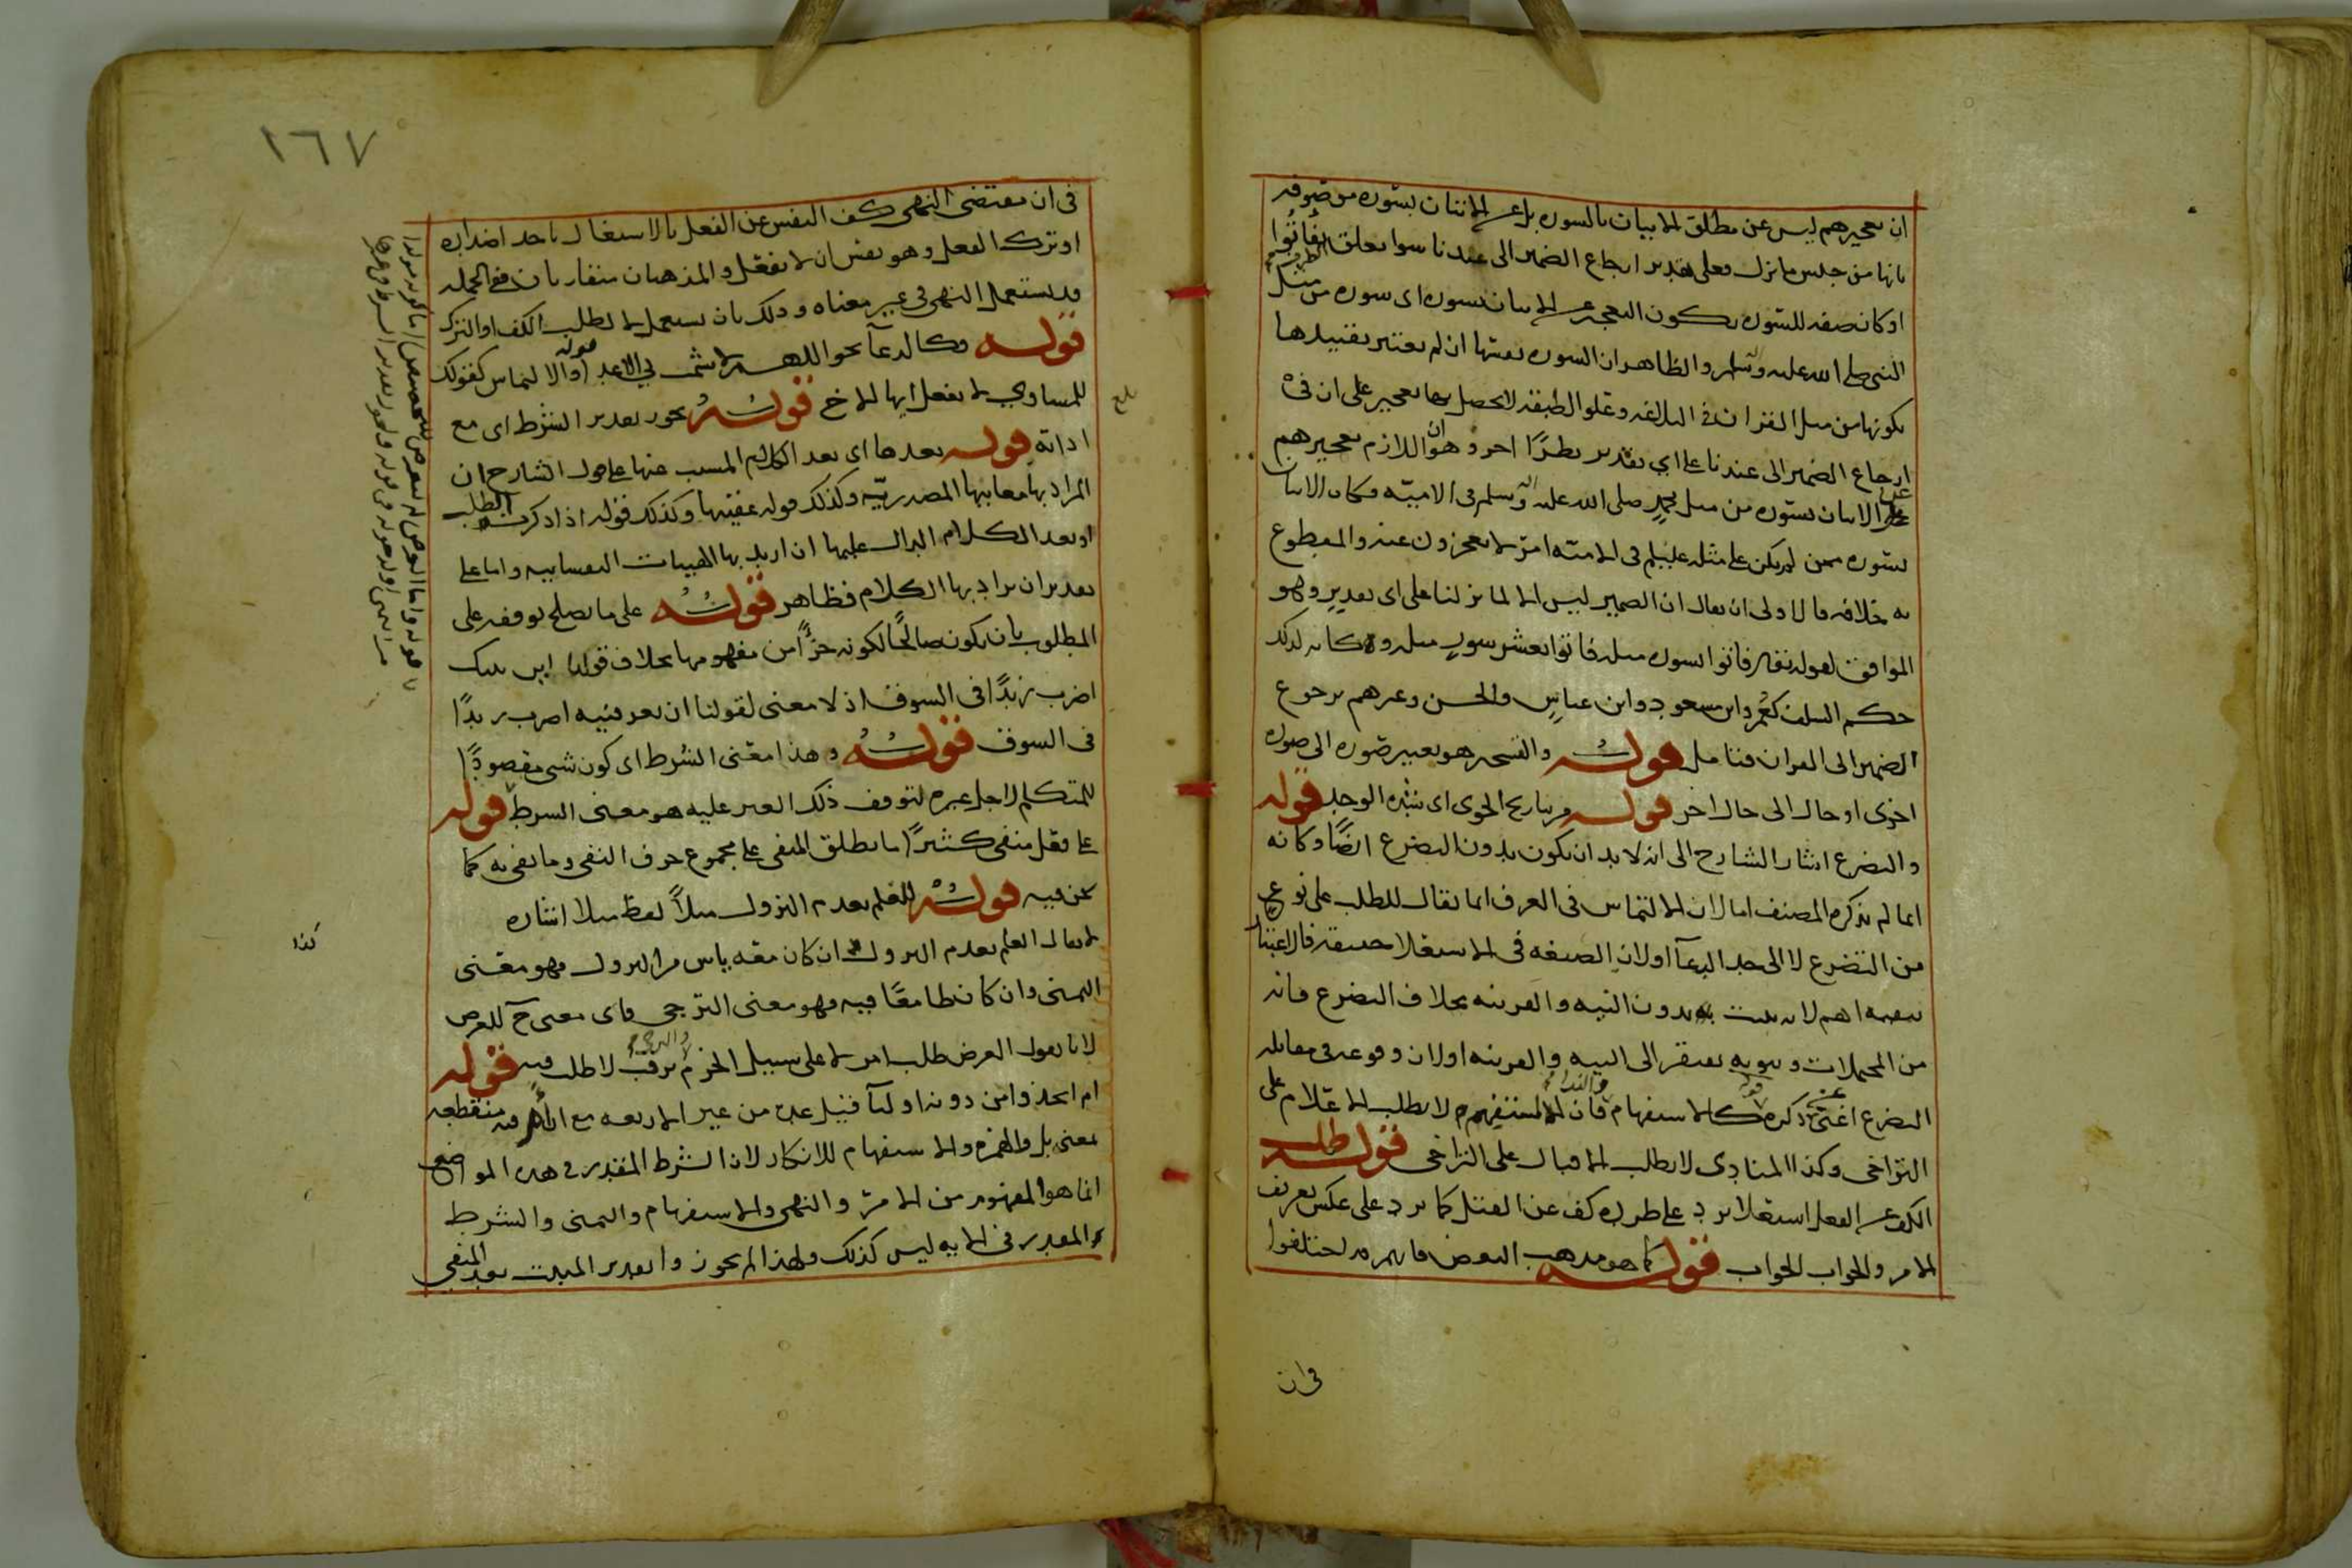 ان تعجيزهم ليس عن مطلق الاتيان بالسورة بل عن الاتيان بسورة موصوفة
بانها من جنس ما نزل فعلى تقدير ارجاع الضمير الى عبدنا سوا تعلق الظرف بفأتوا
او كان صفة للسورة يكون العجز عن الاتيان بسورة اى سورة من مثل
النبى صلى الله عليه وآله وسلم والظاهر ان السورة بعينها ان لم يعتبر تقييدها
بكونها من مثل القران فى البلاغة وعلو الطبقة لا يحصل بها تعجيز على ان فى
ارجاع الضمير الى عبدنا على اي تقدير نظرًا اخر وهو ان اللازم تعجيزهم
عن الاتيان بسورة من مثل محمدٍ صلى الله عليه وآله وسلم فى الامية وكان الاتيان
بسورة ممن لم يكن على مثله عليلم فى الامية امر لا يعجزون عنه والمقطوع
به خلافه فالاولى ان يقال ان الضمير ليس الا لما نزلنا على اى تقدير وهو
الموافق لقوله تعالى فاتوا بسورة مثله فاتوا بعشر سور مثله وكانه لذلك
حكم السلف كعمر وابن مسعود وابن عباسٍ والحسن وغيرهم برجوع
الضمير الى القران فتامل قولـه والتسخير هو تغيير صورة الى صورة
اخرى او حال الى حال اخر قولـه من تباريح الجوى اى شدة الوجد قوله
والتضرع اشار الشارح الى انه لا بد ان يكون بدون التضرع ايضًا وكانه
انما لم يذكره المصنف اما لان الالتماس فى العرف انما يقال للطلب على نوع
من التضرع لا الى حد الدعآ او لان الصيغة فى الاستعلا حقيقة فالاعتنا
بنفيه اهم لانه يثبت بدون النية والقرينة بخلاف التضرع فانه
من المحتملات وثبوته يفتقر الى النية والقرينة او لان وقوعه فى مقابلة
التضرع اغنى عن ذكره قوله كالاستفهام والندا فان المستفهم لا يطلب الاعلام على
التراخى وكذا المنادى لا يطلب الاقبال على التراخى قولـه طلب
الكف عن الفعل استعلا يرد على طرده كف عن القتل كما يرد على عكس تعريف
الامر والجواب الجواب قولـه كما هو مذهب البعض فانهم قد اختلفوا
فى ان
١٦٧
فى ان مقتضى النهى كف النفس عن الفعل بالاشتغال باحد اضداده
او ترك الفعل وهو نفس ان لا تفعل والمذهبان متقاربان فى الجملة
قوله قد يستعمل النهى فى غير معناه وذلك بان يستعمل لا لطلب الكف او الترك
قولـه وكالدعآ نحو اللهم لا تشمت بي الاعدآ قوله والالتماس كقولك
للمساوي لا تفعل ايها الاخ قولـه يجوز تقدير الشرط اى مع
اداته قولـه بعدها اى بعد الكلام المسبب عنها على قول الشارح ان
المراد بها معانيها المصدرية وكذلك قوله عقبتها وكذلك قوله اذا ذكرت الطلب
او بعد الكلام الدال عليها ان اريد بها الهيات النفسانية واما على
تقدير ان يراد بها الكلام فظاهر قولـه على ما يصلح توقفه على
المطلوب بان يكون صالحًا لكونه جزًا من مفهومها بخلاف قولنا اين بيتك
اضرب زيدًا فى السوق اذ لا معنى لقولنا ان تعرفنيه اضرب زيدًا
فى السوق قولـه وهذا معنى الشرط اى كون شى مقصودًا
للمتكلم لاجل غيره لتوقف ذلك الغير عليه هو معنى الشرط قوله
على فعل منفى كثيرًا ما يطلق المنفى على مجموع حرف النفى وما نفى به كما
نحن فيه قولـه للعلم بعدم النزول مثلاً لفظ مثلا اشارة
لا يقال العلم بعدم النزول ان كان معه ياس من النزول فهو معنى
التمنى وان كان طامعًا فيه فهو معنى الترجى فاى معنى ح للعرض
لانا نقول العرض طلب امر لا على سبيل الجزم والترجى ترقب لا طلب فيه قوله
ام اتخذوا من دونه اوليآ قيل عليه من غير الاربعة مع ان ام فيه منقطعة
بمعنى بل والهمزة والاستفهام للانكار لان الشرط المقدر فى هذه المواضع
انما هو المفهوم من الامر والنهى والاستفهام والتمنى والشرط
المقدر فى الاية ليس كذلك ولهذا لم يجوزوا تقدير المثبت بعد المنفى
بلغ
كذا